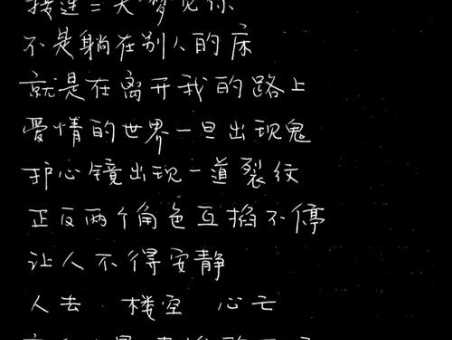 接连三天梦见你
不是躺在别人的床
就是在离开我的路上
爱情的世界一旦出现鬼
护心镜出现一道裂纹
正反两个角色互掐不停
让人不得安静
人去 楼空 心亡